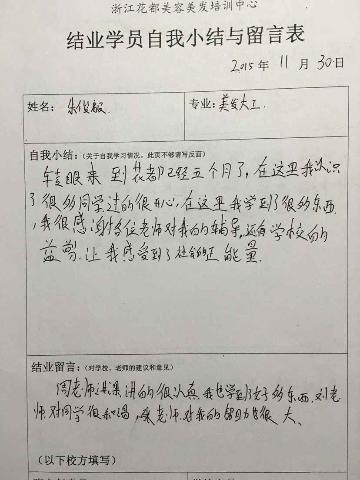 浙江花都美容美发培训中心
结业学员自我小结与留言表
2015年 11月 30日
姓名: 朱俊敏
专业: 美发大工
自我小结:(关于自我学习情况,此页不够请写反面)
转眼来到花都已经五个月了,在这里我认识
了很多同学过的很开心,在这里我学到了很多东西
,我很感谢各位老师对我的辅导,还有学校的
益剪.让我感受到了社会的正能量.
结业留言:(对学校、老师的建议和意见)
周老师讲课讲的很认真,我也学到了好多东西.刘老
师对同学很和谒,老师.对我的帮助也很大.
(以下校方填写)